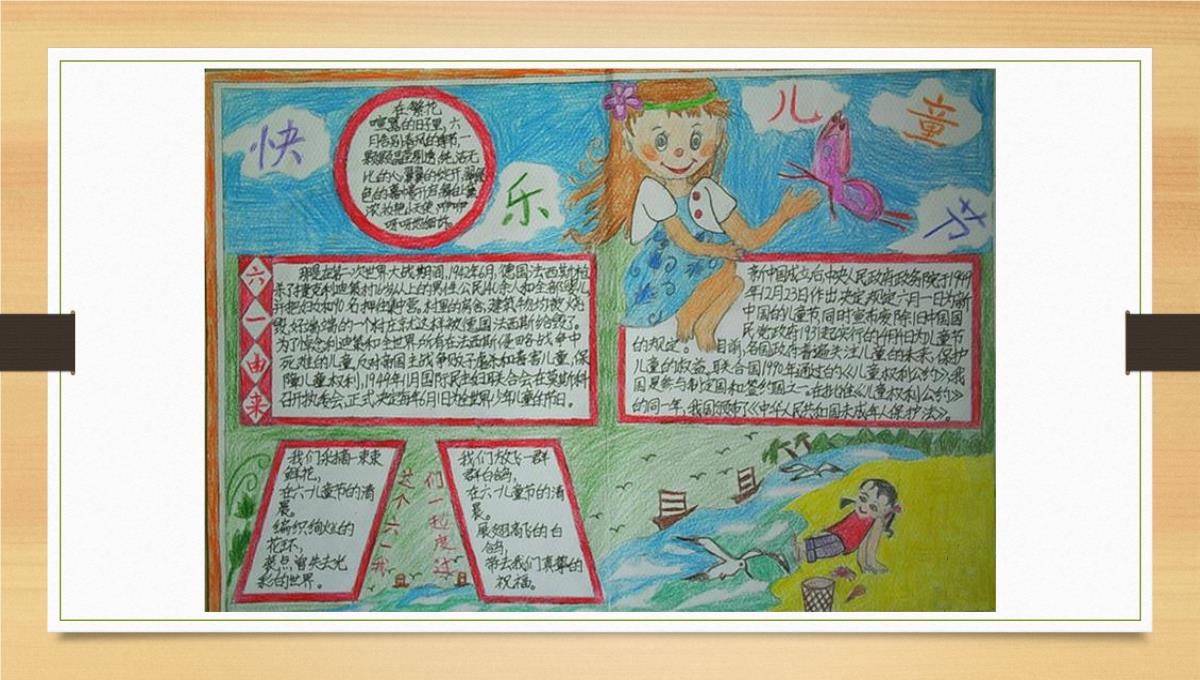 快
乐
儿
童
节
在繁花
喧嚣的日子里,六
月告别春风的季节一
色的
呀呀
六
一
由
来
那是在第二次世界大战期间,1942年6月,德国法西斯枪
杀了捷克利迪策村16岁以上的男性公民140余人和全部婴儿
并把妇女和90名押往集中营。村里的房舍、建筑物均被烧
毁,好端端的一个村庄就这样被德国法西斯给毁了。
为了悼念利迪策和全世界所有在法西斯侵略战争中
死难的儿童,反对帝国主战争贩子虐杀和毒害儿童,保
障儿童权利,1949年11月国际民主妇联合会在莫斯科
召开执委会,正式决定每年6月1日为世界少年儿童的节日。
新中国成立后中央人民政府政务院于1949
年12月23日作出决定规定六月一日为新
中国的儿童节,同时宣布废除旧中国国
民党政府1931起实行的4月4日为儿童节
的规定。 目前,各国政府普遍关注儿童的未来,保护
儿童的权益。联合国1990年通过的《儿童权利公约》,我
国是参与制定国和签约国之一。在批准《儿童权利公约》
的同一年,我国颁布了《中华人民共和国未成年人保护法》。
我们采摘一束束
鲜花,
在六一儿童节的清
晨。
编织绚烂的
花环,
装点曾失去光
彩的世界。
这个六一我
们一起度过
我们放飞一群
群白鸽,
在六一儿童节的清
晨。
展翅高飞的白
鸽,
带去我们真挚的
祝福。